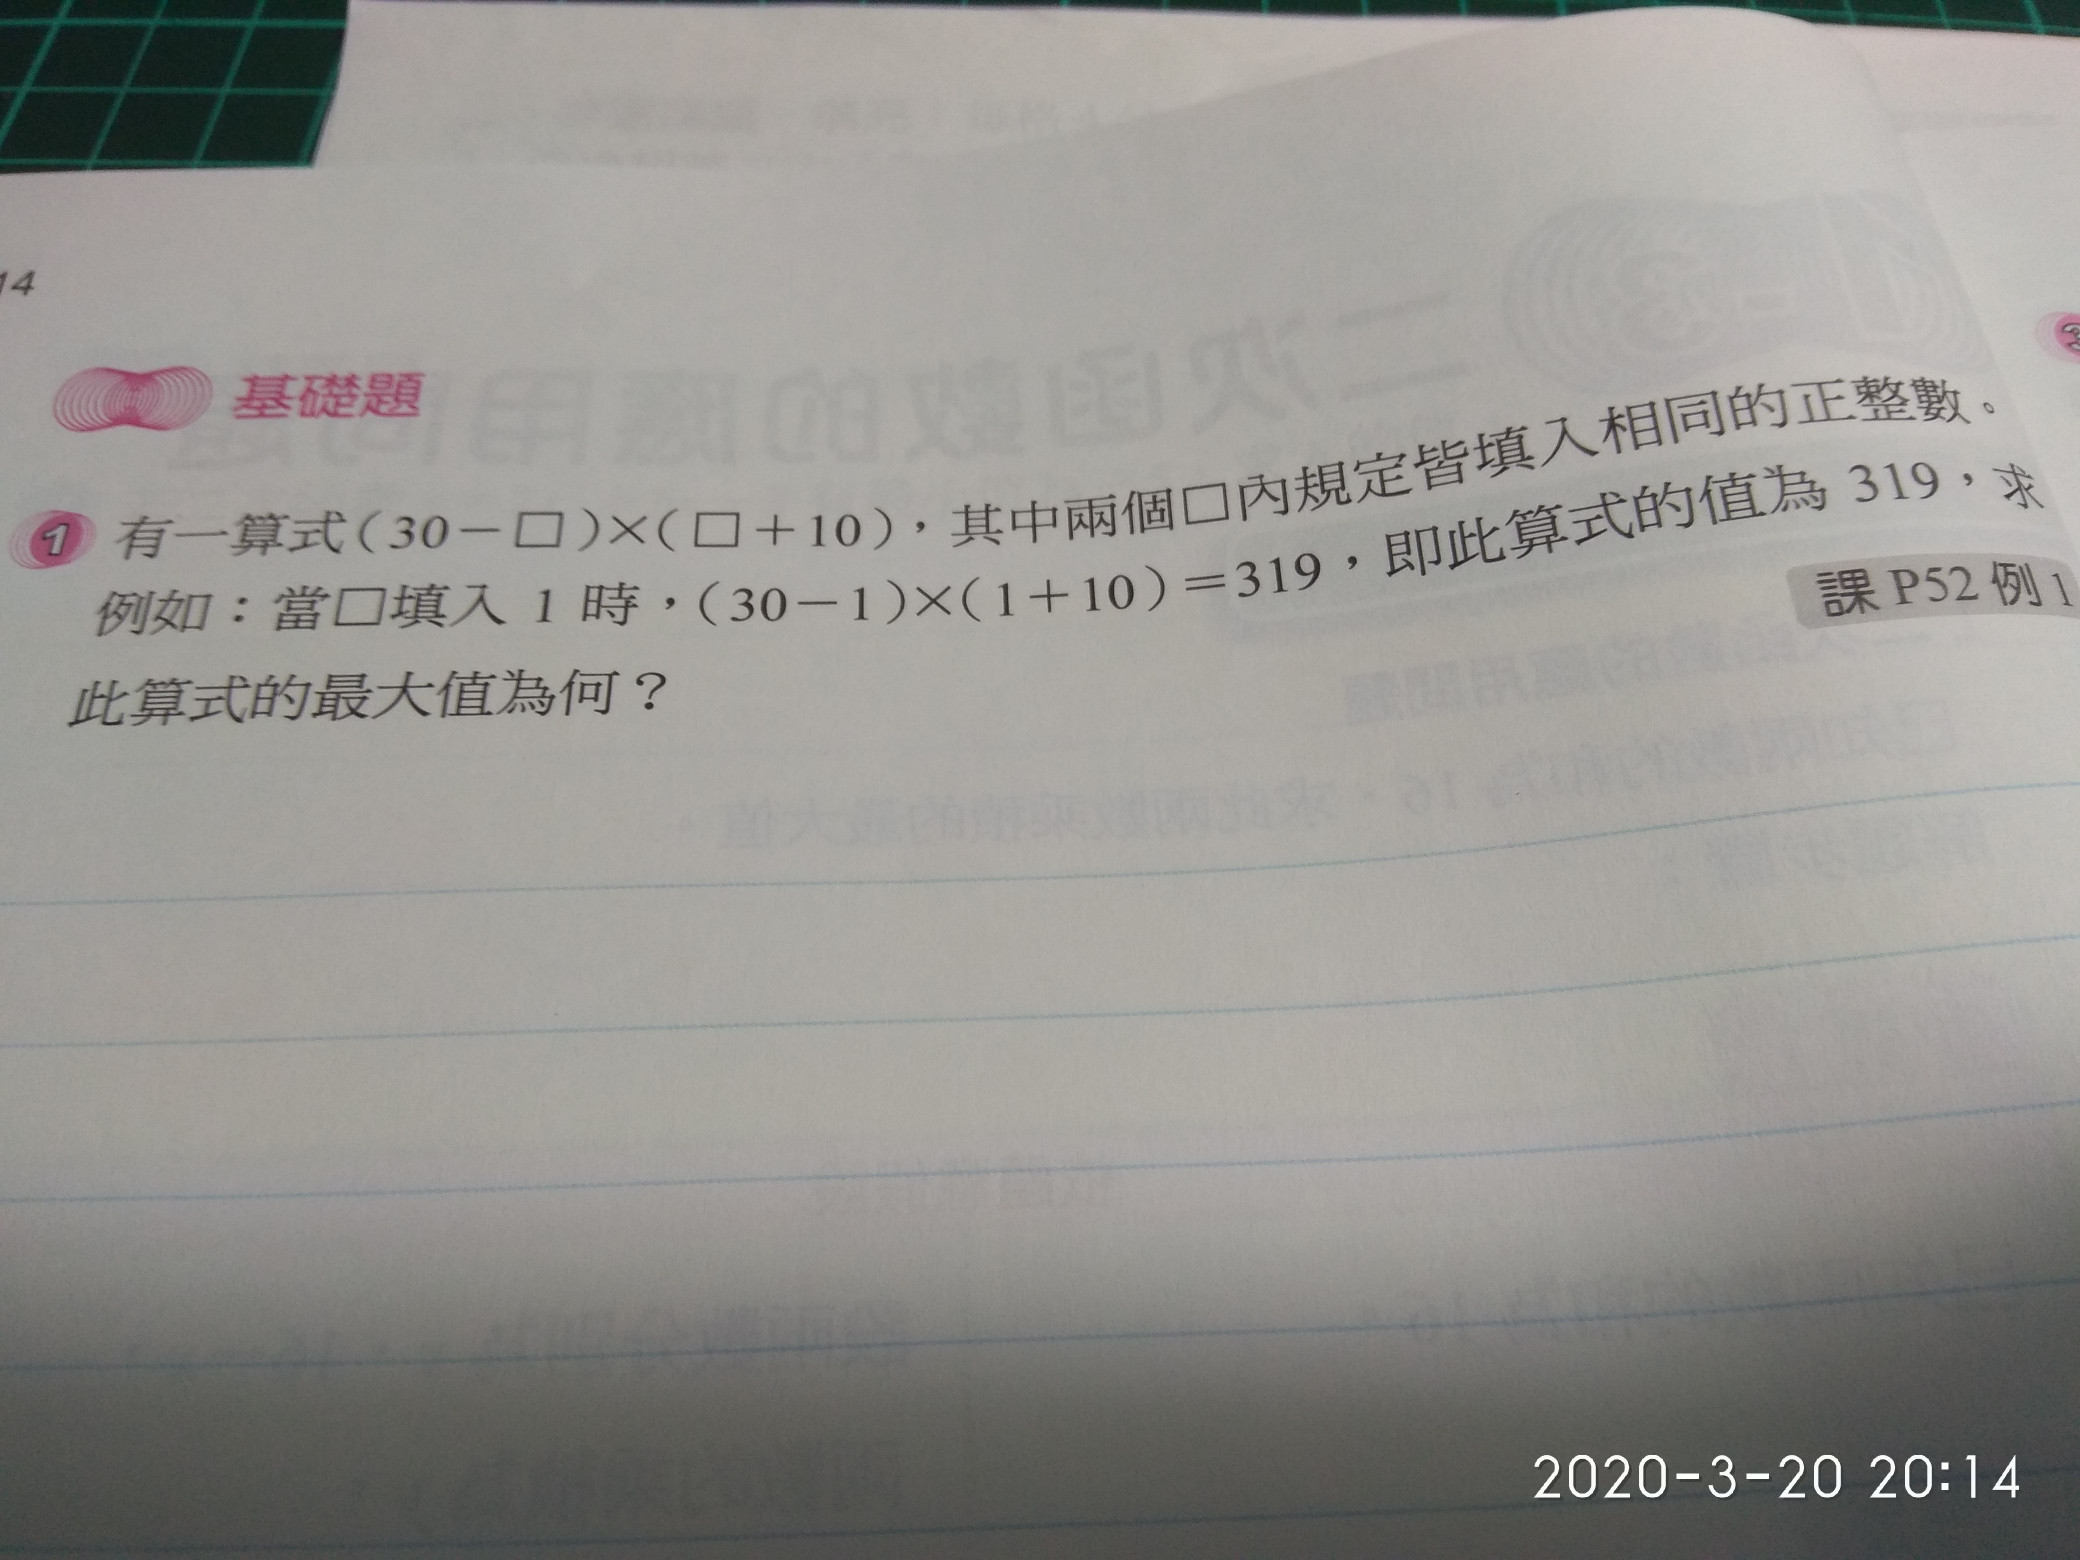 14
基礎題
1 有一算式(30－□)×(□＋10)，其中兩個□內規定皆填入相同的正整數。
例如：當□填入 1 時，(30－1)×(1＋10)＝319，即此算式的值為 319，求
此算式的最大值為何？
課 P52 例 1
3
2020-3-20 20:14